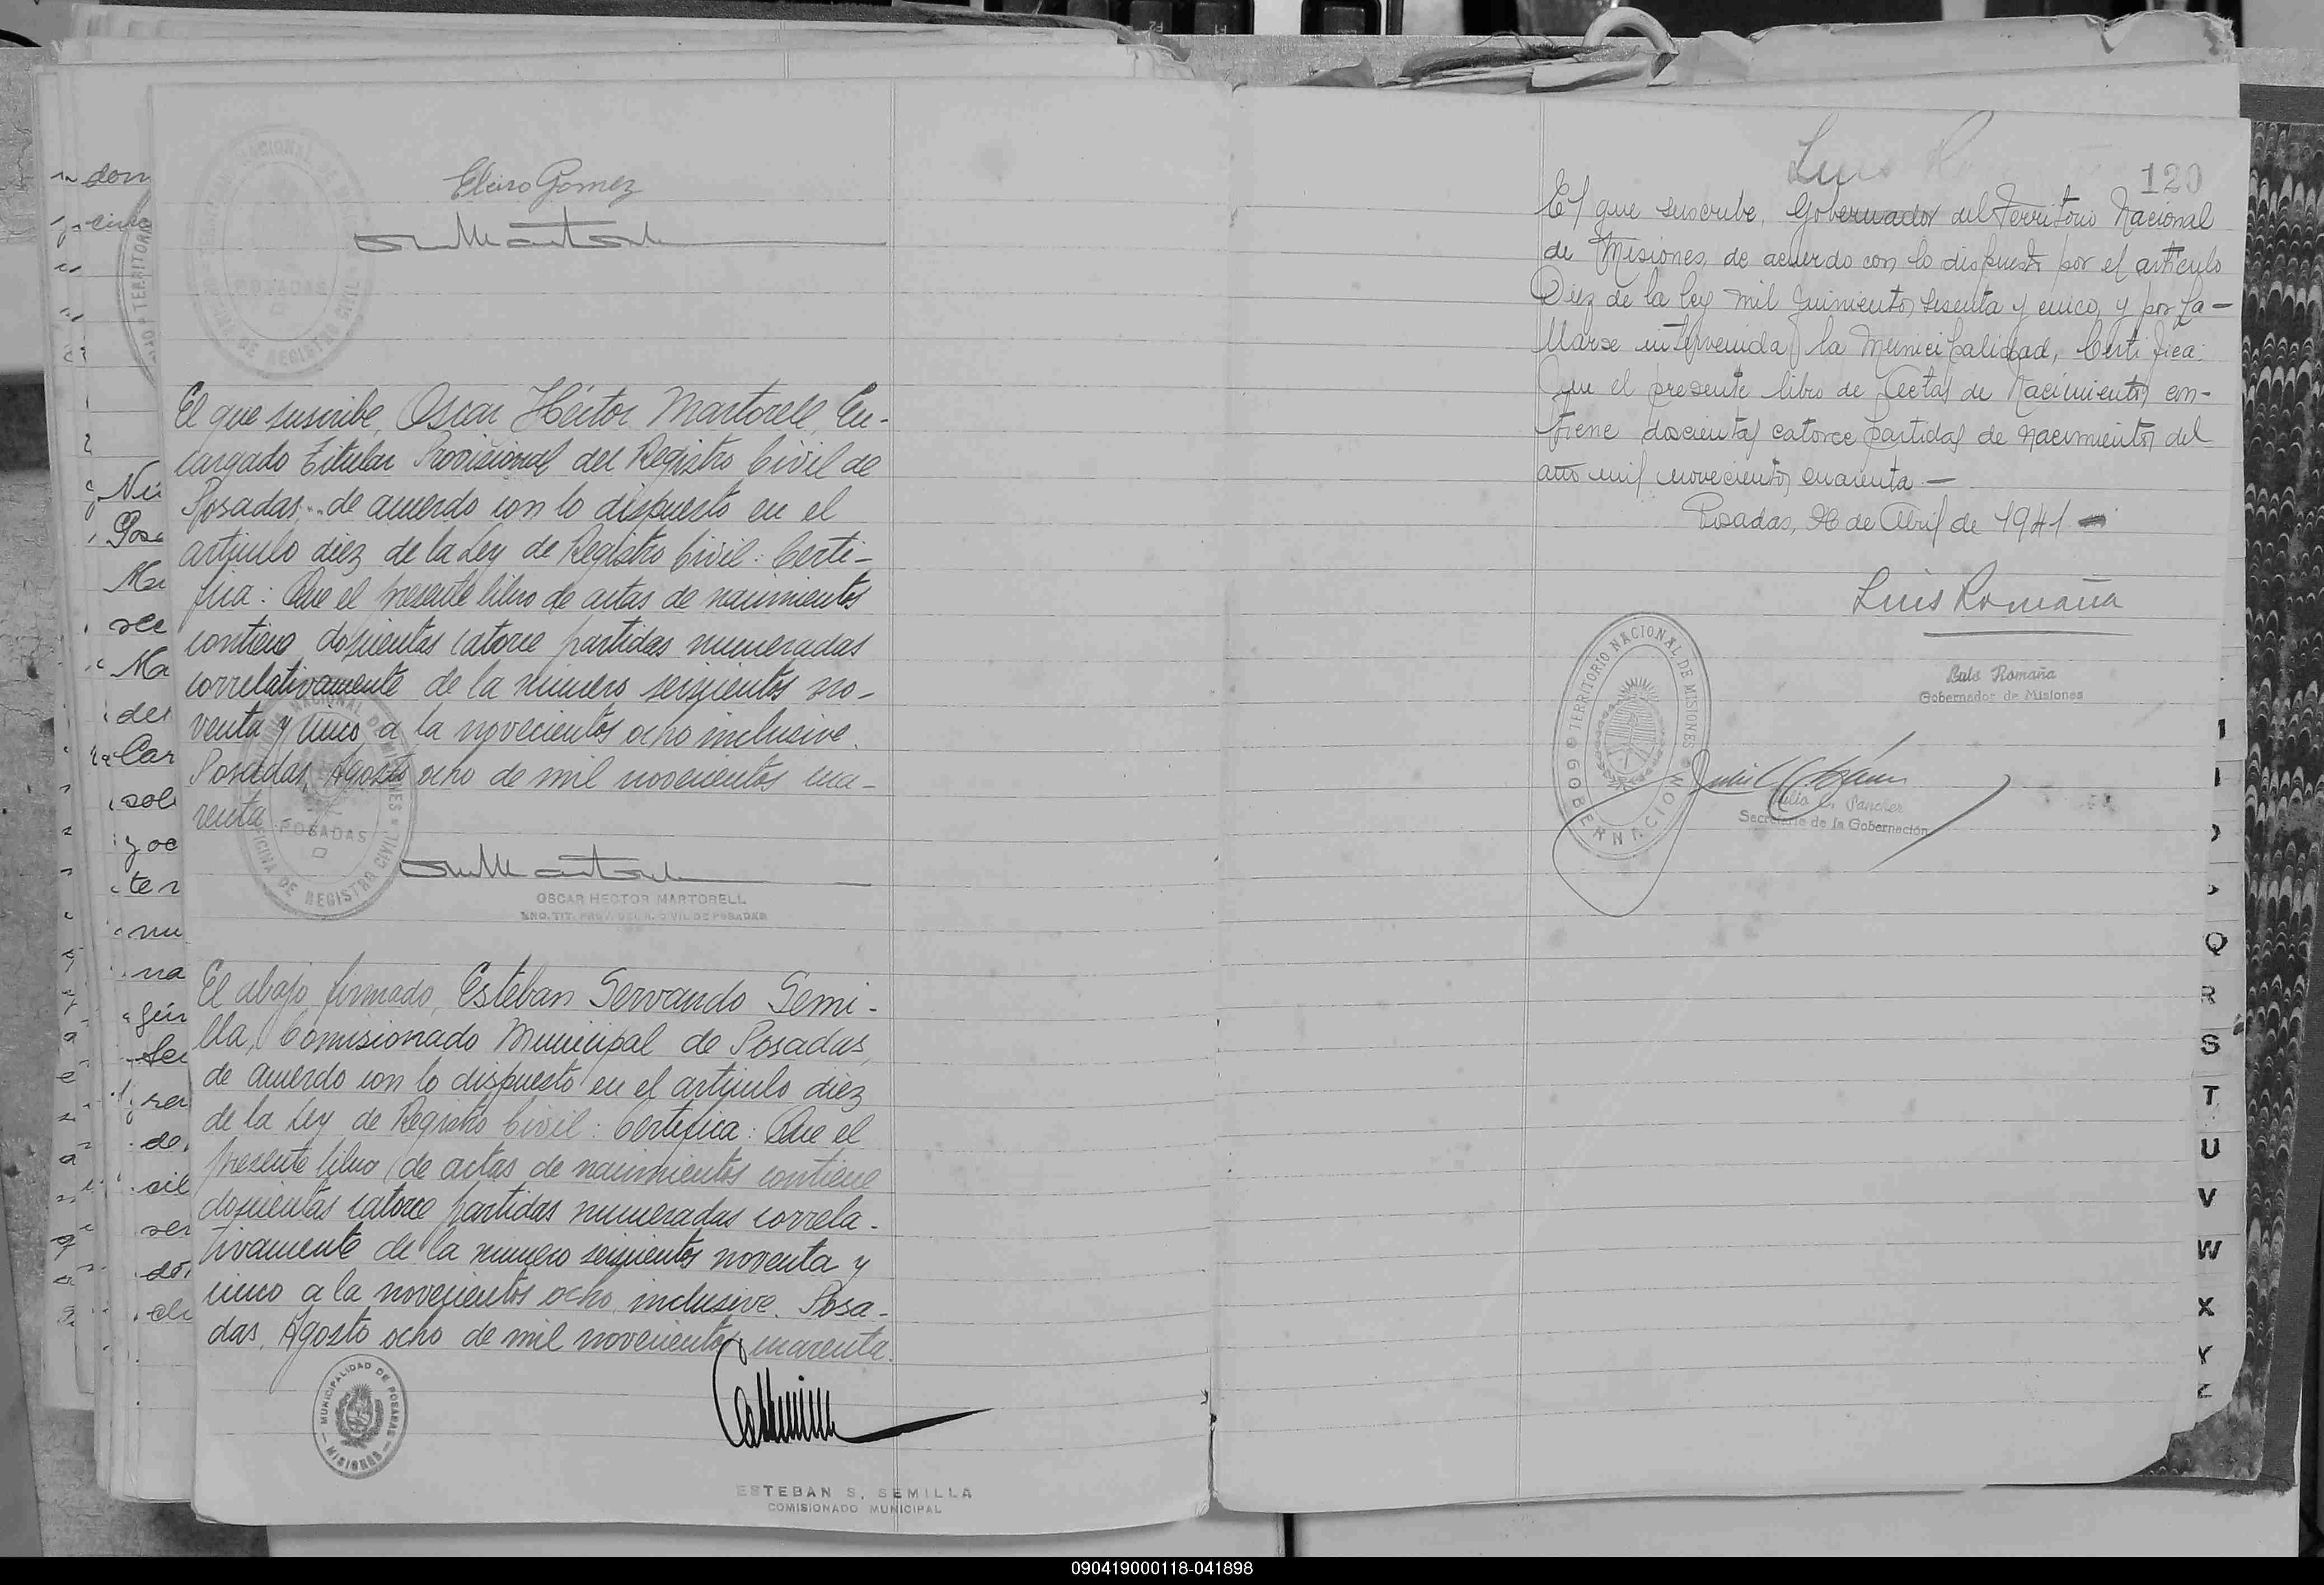 Eleiro Gomez
El que suscribe, Oscar Héctor Martorell, En-
cargado Titular Provisional del Registro Civil de
Posadas, de acuerdo con lo dispuesto en el
artículo diez de la Ley de Registro Civil: Certi-
fica: Que el presente libro de actas de nacimientos
contiene doscientas catorce partidas numeradas
correlativamente de la número seiscientos no-
venta y cinco a la novecientos ocho inclusive.
Posadas, Agosto ocho de mil novecientos cua-
renta.
POSADAS
OFICINA DE REGISTRO CIVIL
OSCAR HECTOR MARTORELL
ENC. TIT. PROV. DEL R. CIVIL DE POSADAS
El abajo firmado, Esteban Servando Semi-
lla, Comisionado Municipal de Posadas,
de acuerdo con lo dispuesto en el artículo diez
de la Ley de Registro Civil: Certifica: Que el
presente libro de actas de nacimientos contiene
doscientas catorce partidas numeradas correla-
tivamente de la numero seiscientos noventa y
cinco a la novecientos ocho, inclusive. Posa-
das, Agosto ocho de mil novecientos cuarenta.
MUNICIPALIDAD DE POSADAS
MISIONES
ESTEBAN S. SEMILLA
COMISIONADO MUNICIPAL
Luis
120
El que suscribe, Gobernador del Territorio Nacional
de Misiones, de acuerdo con lo dispuesto por el artículo
Diez de la ley mil quinientos sesenta y cinco, y por ha-
llarse intervenida la Municipalidad, Certifica:
Que el presente libro de Actas de Nacimientos con-
tiene doscientas catorce partidas de nacimientos del
año mil novecientos cuarenta.—
Posadas, 26 de Abril de 1941
Luis Romaña
TERRITORIO NACIONAL DE MISIONES
GOBERNACION
Luis Romaña
Gobernador de Misiones
Julio Sanchez
Secretario de la Gobernación
Q
R
S
T
U
V
W
X
Y
Z
090419000118-041898